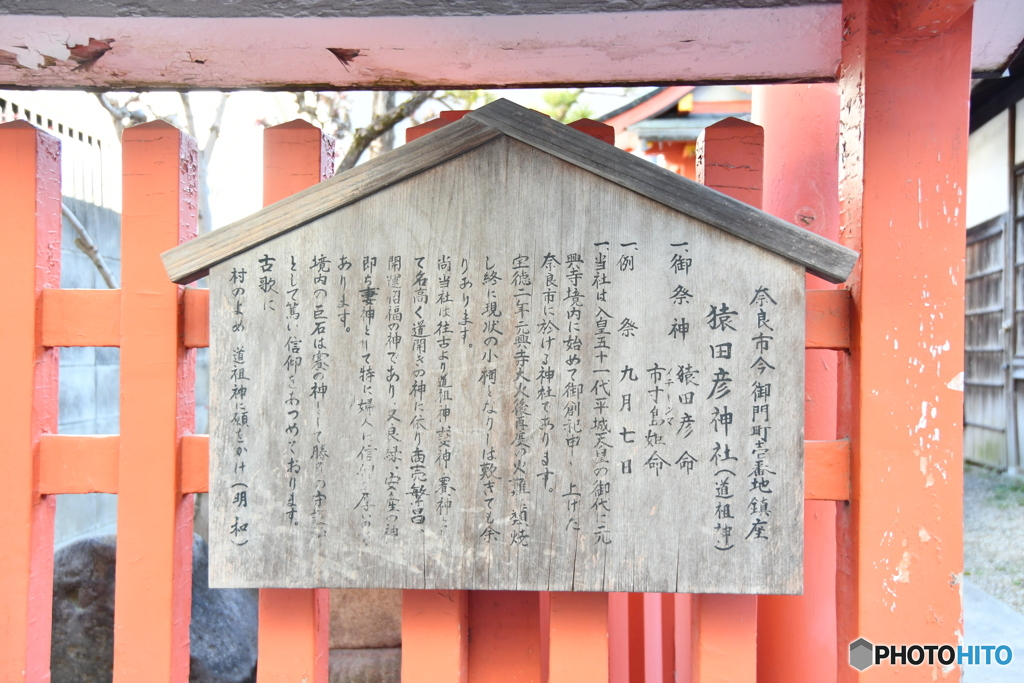 奈良市今御門町壱番地鎮座
猿田彦神社(道祖神)
一、御祭神 猿田彦命
市寸島姫命
イチキシマ
一、例祭 九月七日
一、当社は人皇五十一代平城天皇の御代に元
興寺境内に始めて御創祀申し上げた
奈良市に於ける神社であります。
宝徳二年元興寺大火後再度の火難に類焼
し終に現状の小祠となりしは歎きても余
りあります。
尚当社は往古より道祖神
て名高く道開きの神に依り商売繁昌、
開運招福の神であり、又良縁、安産の
即ち妻神として特に婦人に信仰厚いので
あります。
境内の巨石は賽の神として勝負の
として篤い信仰をあつめております。
古歌に
村のよめ 道祖神に願をかけ(明和)
PHOTOHITO